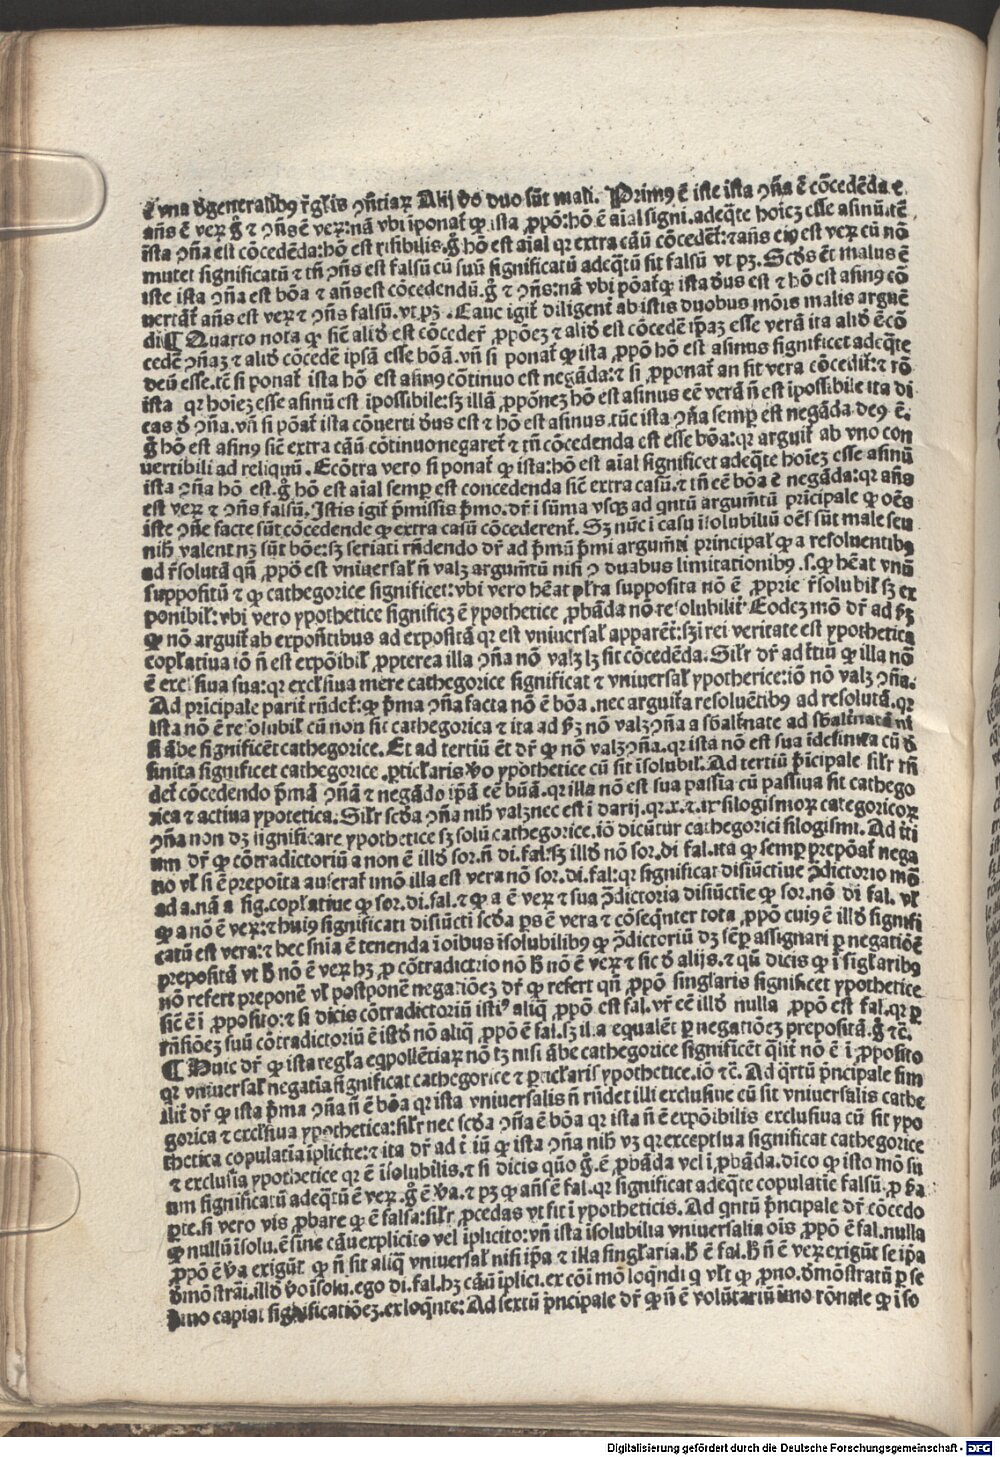 ē vna d̄ generalibꝰ r̄gl̄is ꝯn̄tiaꝝ Alij d̄o duo sūt mali. Primꝰ ē iste ista ꝯn̄a ē cōcedēda ⁊
an̄s ē veꝝ g̊ ⁊ ꝯn̄s ē veꝝ: nā vbi īponat̄ ꝙ ista ꝓpō: hō ē aīal signi. adeq̄te hoīeꝫ esse asinū. tē
ista ꝯn̄a est cōcedēda: hō est risibilis. g̊ hō est aīal qꝛ extra cāū cōcedēt̄: ⁊ an̄s eiꝰ est veꝝ cū nō
mutet significatū ⁊ tn̄ ꝯn̄s est falsū cū suū significatū adeq̄tū sit falsū vt pꝫ. Scd̄s ēt malus ē
iste ista ꝯn̄a est bōa ⁊ an̄s est cōcedendū. g̊ ⁊ ꝯn̄s: nā vbi pōat̄ ꝙ ista d̄us est ⁊ hō est asinꝰ cō
uertāt̄ an̄s est veꝝ ⁊ ꝯn̄s falsū. vt pꝫ. Caue igit̄ diligent̄ ab istis duobus mōis malis arguē
di ¶ Quarto nota ꝙ sic̄ aliud est cōceder̄ ꝓpōeꝫ ⁊ aliud est cōcedē īpaꝫ esse verā ita aliud ē cō
cedē ꝯn̄aꝫ ⁊ aliud cōcedē ipsā esse bōā. vn̄ si ponat̄ ꝙ ista ꝓpō hō est asinus significet adeq̄te
deū esse. tē si ponat̄ ista hō est asinꝰ cōtinuo est negāda: ⁊ si ꝓponat̄ an sit vera cōcedit̄: ⁊ rō
ista qꝛ hoīeꝫ esse asinū est īpossibile: sꝫ illā ꝓpōneꝫ hō est asinus eē verā n̄ est īpossibile ita di
cas d̄ ꝯn̄a. vn̄ si pōat̄ ista cōuerti d̄us est ⁊ hō est asinus. tūc ista ꝯn̄a semꝑ est negāda deꝰ ē.
g̊ hō est asinꝰ sic̄ extra cāū cōtinuo negaret̄ ⁊ tn̄ cōcedenda est esse bōa: qꝛ arguit̄ ab vno con
uertibili ad reliquū. Ecōtra vero si ponat̄ ꝙ ista: hō est aīal significet adeq̄te hoīeꝫ esse asinū
ista ꝯn̄a hō est. g̊ hō est aīal semꝑ est concedenda sic̄ extra casū. ⁊ tn̄ eē bōa ē negāda: qꝛ an̄s
est veꝝ ⁊ ꝯn̄s falsū. Istis igit̄ p̄missis p̄mo. dr̄ ī sūma vsqꝫ ad qntū argum̄tū prīcipale ꝙ oēs
iste ꝯn̄e facte sūt cōcedende ꝙ extra casū cōcederent̄. Sꝫ nūc ī casu īsolubiliū oēs sūt male seu
nih̄ valent nꝫ sūt bōe: sꝫ seriati rn̄dendo dr̄ ad p̄mū p̄mi argum̄ti principal̄ ꝙ a resoluentibꝰ
ad r̄solutā qn̄ ꝓpō est vniuersal̄ n̄ valꝫ argum̄tū nisi ꝯ duabus limitationibꝰ .s. ꝙ hēat vnū
suppositū ⁊ ꝙ cathegorice significet: vbi vero hēat pl̄ra supposita nō ē ꝓprie r̄solubil̄ sꝫ ex
ponibil̄: vbi vero ypothetice significꝫ ē ypothetice ꝓbāda nō resolubilit̄ Eodeꝫ mō dr̄ ad p̄ꝫ
ꝙ nō arguit̄ ab expon̄tibus ad expositā qꝛ est vniuersal̄ apparēt̄: sꝫ ī rei veritate est ypothetica
copl̄atiua iō n̄ est expōibil̄ ꝓpterea illa ꝯn̄a nō valꝫ lꝫ sit cōcedēda. Sil̄r dr̄ ad t̄tiū ꝙ illa nō
ē exclusiua sua: qꝛ excl̄siua mere cathegorice significat ⁊ vniuersal̄ ypotherice: iō nō valꝫ ꝯn̄a.
Ad pricipale parit̄ rn̄det̄: ꝙ p̄ma ꝯn̄a facta nō ē bōa. nec arguit̄ a resoluētibꝰ ad resolutā. qꝛ
ista nō ē resolubil̄ cū non sit cathegorica ⁊ ita ad p̄ꝫ nō valꝫ ꝯn̄a a sb̄alt̄nate ad sb̄alt̄natā ni
si ābe significēt cathegorice. Et ad tertiū ēt dr̄ ꝙ nō valꝫ ꝯn̄a. qꝛ ista nō est sua īdefinita cū d̄
finita significet cathegorice ꝑticl̄aris v̄o ypothetice cū sit īsolubil̄. Ad tertiū p̄īcipale sil̄r rn̄
det̄ cōcedendo p̄mā ꝯn̄ā ⁊ negādo ip̄ā eē būā. qꝛ illa nō est sua passīa cū passiua sit cathego
rica ⁊ actiua ypotetica. Sil̄r scd̄a ꝯn̄a nih̄ valꝫ nec est ī darij. qꝛ .x. ⁊ .ix. silogismoꝝ categoricoꝝ
ꝯn̄a non dꝫ significare ypothetice sꝫ solū cathegorice. iō dicūtur cathegorici silogismi. Ad t̄ti
um dr̄ ꝙ cōtradictoriū a non ē illud sor. n̄ di. fal. sꝫ illud nō sor. di fal. ita ꝙ semꝑ prepōat̄ nega
no vl̄ si ē preposita auferat̄ imō illa est vera nō sor. di. fal: qꝛ significat disiūctiue p̄dictorio mō
ad a. nā a sig. copl̄atiue ꝙ sor. di. fal. ⁊ ꝙ a ē veꝝ ⁊ sua p̄dictoria disiūctīe ꝙ sor. nō di fal. vl̄
ꝙ a nō ē veꝝ: ⁊ huiꝰ significati disiūcti scd̄a ꝑs ē vera ⁊ cōseqn̄ter tota ꝓpō cuiꝰ ē illud signifi
catū est vera: ⁊ hec sn̄ia ē tenenda ī oībus īsolubilibꝰ ꝙ p̄dictoriū dꝫ sēꝑ assignari ꝑ negatiōē
prepositā vt h̄ nō ē veꝝ hꝫ ꝓ cōtradictrio nō h̄ nō ē veꝝ ⁊ sic d̄ alijs. ⁊ qn̄ dicis ꝙ ī sigl̄aribꝰ
nō refert preponē vl̄ postponē negatiōeꝫ dr̄ ꝙ refert qn̄ ꝓpō singl̄aris significet ypothetice
sic̄ ē ī ꝓposito: ⁊ si dicis cōtradictoriū istiꝰ aliq̄ ꝓpō est fal. vr̄ eē illud nulla ꝓpō est fal. qꝛ ꝑ
rn̄siōeꝫ suū cōtradictoriū ē istud nō aliq̄ ꝓpō ē fal. sꝫ illa equalēt ꝑ negatiōeꝫ prepositā. g̊ ⁊c̄.
¶ Huic dr̄ ꝙ ista regl̄a eq̄pollētiaꝝ nō tꝫ nisi ābe cathegorice significēt ql̄it̄ nō ē ī ꝓposito
qꝛ vniuersal̄ negatīa significat cathegorice ⁊ ꝑticl̄aris ypothetice. iō ⁊c̄. Ad q̄rtū p̄ncipale sim
ilit̄ dr̄ ꝙ ista p̄ma ꝯn̄a n̄ ē bōa qꝛ ista vniuersalis n̄ rn̄det illi exclusiue cū sit vniuersalis cathe
gorica ⁊ excl̄siua ypothetica: sil̄r nec scd̄a ꝯn̄a ē bōa qꝛ ista n̄ ē expōibilis exclusiua cū sit ypo
thetica copulatia īplicite: ⁊ ita dr̄ ad t̄tiū ꝙ ista ꝯn̄a nih̄ vꝫ qꝛ exceptīua significat cathegorice
⁊ exclusīa ypothetice qꝛ ē īsolubilis. ⁊ si dicis quō g̊ ē ꝓbāda vel īꝓbāda. dico ꝙ isto mō su
um significatū adeq̄tū ē veꝝ. g̊ ē v̄a. ⁊ pꝫ ꝙ an̄s ē fal. qꝛ significat adeq̄te copulatīe falsū. ꝓ p̄a
ꝑte. si vero vis ꝓbare ꝙ ē falsa: sil̄r ꝓcedas vt sit ī ypotheticis. Ad qntū p̄ncipale dr̄ cōcedo
ꝙ nullū īsolu. ē sine cāu explicito vel īplicito: vn̄ ista īsolubilia vniuersalia oīs ꝓpō ē fal. nulla
ꝓpō ē v̄a exigūt ꝙ n̄ sit aliq̄ vniuersal̄ nisi ip̄a ⁊ illa singl̄aria. h̄ ē fal. h̄ n̄ ē veꝝ exigūt se ip̄a
d̄mōstrāi. illud v̄o īsolu. ego di. fal. hꝫ cāū īplici. ex cōi mō loqn̄di q vl̄t ꝙ ꝓno. d̄mōstratū ꝑ se
primo capiat significatiōeꝫ. ex loqn̄te: Ad sextū p̄ncipale dr̄ ꝙ n̄ ē volūtariū imo rōnale ꝙ īso
Digitalisierung gefördert durch die Deutsche Forschungsgemeinschaft - DFG